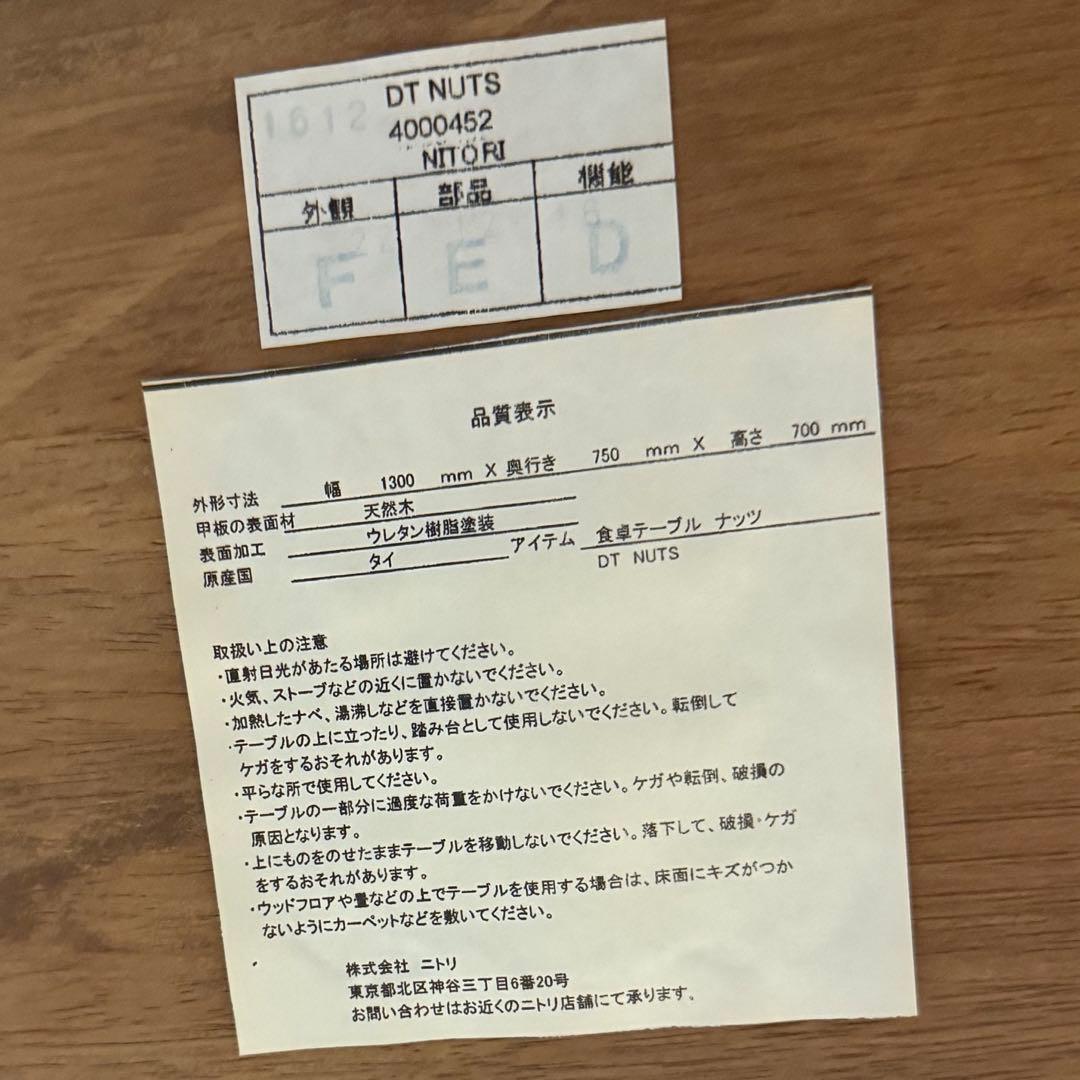 1612
DT NUTS
4000452
NITORI
外観 部品 機能
F E D
品質表示
外形寸法 幅 1300 mm X 奥行き 750 mm X 高さ 700 mm
甲板の表面材 天然木
表面加工 ウレタン樹脂塗装
原産国 タイ
アイテム 食卓テーブル ナッツ
DT NUTS
取扱い上の注意
・直射日光があたる場所は避けてください。
・火気、ストーブなどの近くに置かないでください。
・加熱したナベ、湯沸しなどを直接置かないでください。
・テーブルの上に立ったり、踏み台として使用しないでください。転倒して
ケガをするおそれがあります。
・平らな所で使用してください。
・テーブルの一部分に過度な荷重をかけないでください。ケガや転倒、破損の
原因となります。
・上にものをのせたままテーブルを移動しないでください。落下して、破損・ケガ
をするおそれがあります。
・ウッドフロアや畳などの上でテーブルを使用する場合は、床面にキズがつか
ないようにカーペットなどを敷いてください。
株式会社 ニトリ
東京都北区神谷三丁目6番20号
お問い合わせはお近くのニトリ店舗にて承ります。